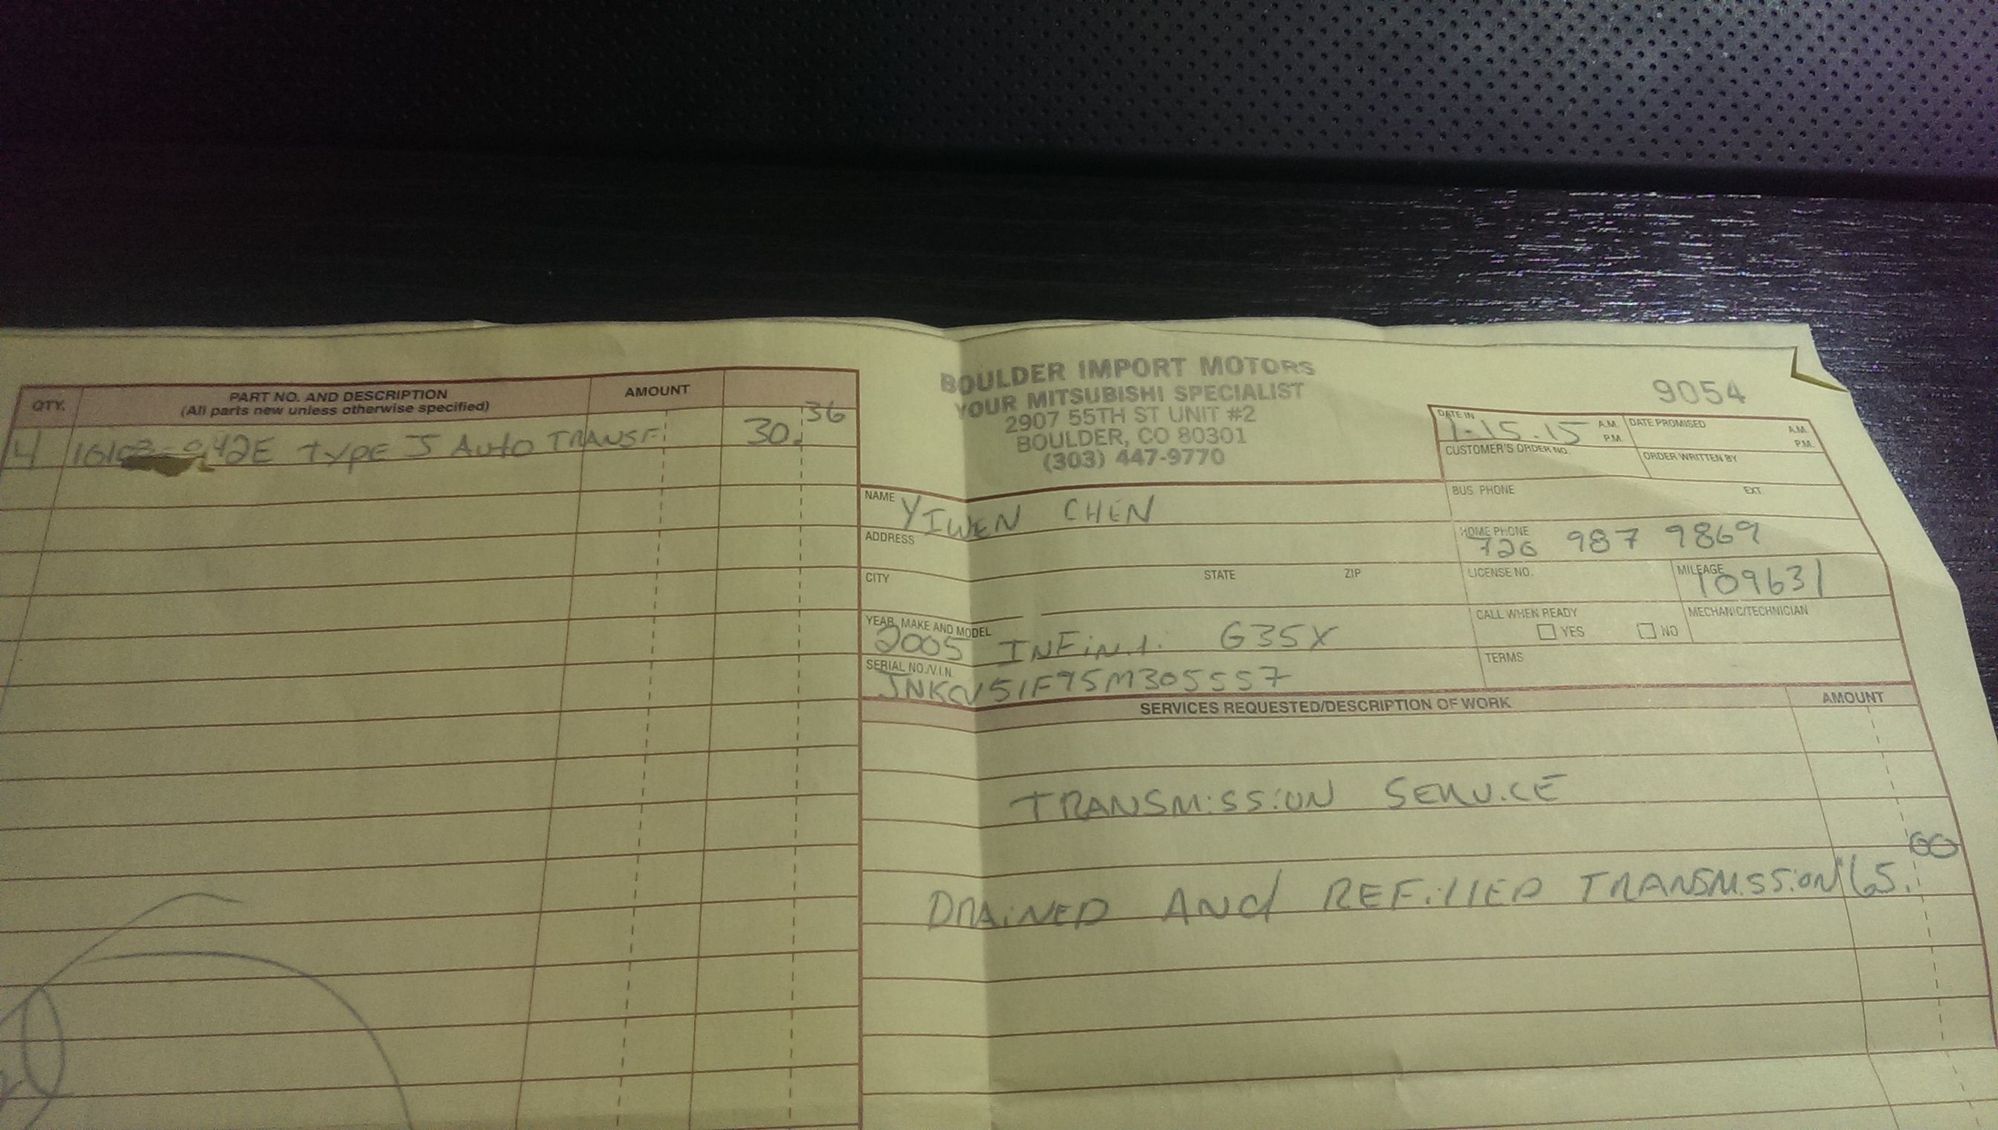 BOULDER IMPORT MOTORS
YOUR MITSUBISHI SPECIALIST
2907 55TH ST UNIT #2
BOULDER, CO 80301
(303) 447-9770
9054
QTY. PART NO. AND DESCRIPTION AMOUNT
(All parts new unless otherwise specified)
4 TYPE J AUTO TRANSF. 30.36
DATE IN 1.15.15 A.M. P.M. DATE PROMISED A.M. P.M.
CUSTOMER'S ORDER NO. ORDER WRITTEN BY
NAME YIWEN CHEN BUS. PHONE EXT
ADDRESS HOME PHONE 720 987 9869
CITY STATE ZIP LICENSE NO. MILEAGE 109631
YEAR, MAKE AND MODEL 2005 INFiNi. G35X CALL WHEN READY YES NO MECHANIC/TECHNICIAN
SERIAL NO./V.I.N. JNKCV51F95M305557 TERMS
SERVICES REQUESTED/DESCRIPTION OF WORK AMOUNT
TRANSMiSSiON SERViCE
DRAiNED ANd REFillED TRANSMiSSiON 65.00